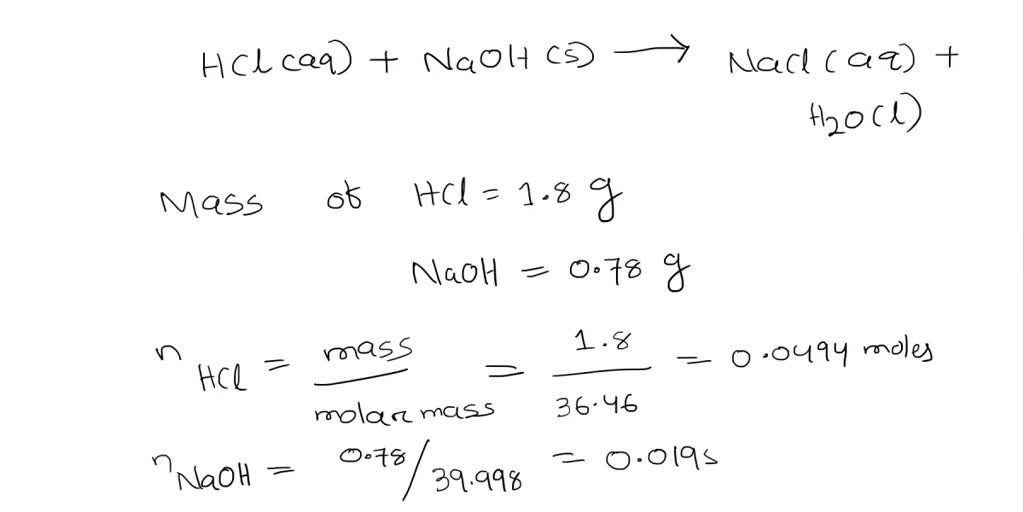 HCl (aq) + NaOH (s) → NaCl (aq) +
H₂O (l)
Mass of HCl = 1.8 g
NaOH = 0.78 g
n HCl = mass / molar mass = 1.8 / 36.46 = 0.0494 moles
n NaOH = 0.78 / 39.998 = 0.0195